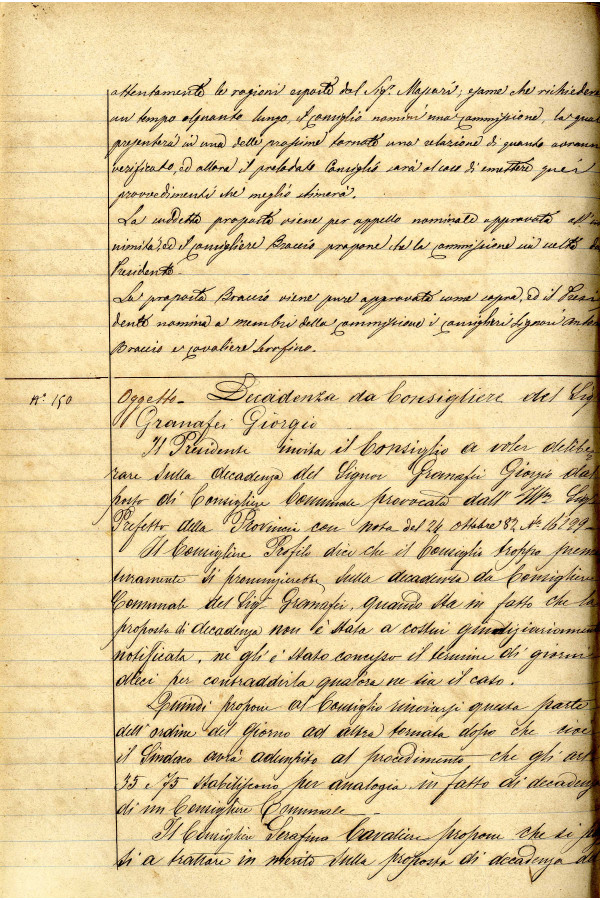 attentamente le ragioni esposte dal Sig.r Massari; esame che richiedera
un tempo alquanto lungo, il consiglio nomini una commissione, la qual
presenterà in una delle prossime tornate una relazione di quanto avran
verificato, ed allora il prelodato Consiglio sarà al caso di emettere quei
provvedimenti che meglio stimerà.
La suddetta proposta viene per appello nominale approvata all'u
nimità, ed il Consigliere Braccio propone che la commissione sia scelta da
Presidente.
La proposta Braccio viene pure approvata come sopra, ed il Presi
dente nomina a membri della commissione i consiglieri Signori Anto
Braccio e Cavaliere Serafino.
N.° 150
Oggetto - Decadenza da Consigliere del Sig
Granafei Giorgio
Il Presidente invita il Consiglio a voler delibe
rare sulla decadenza del Signor Granafei Giorgio dal
posto di Consigliere Comunale provocata dall' Ill.mo Sig.
Prefetto della Provincia con nota del 24 Ottobre 82. N.o 16299 -
Il Consigliere Profilo dice che il Consiglio troppo prema
turamente si pronunzierebbe sulla decadenza da Consigliere
Comunale del Sig.r Granafei, quando sta in fatto che la
proposta di decadenza non è stata a costui giudiziariamen
notificata, nè gli è stato concesso il termine di giorni
dieci per contraddirla qualora ne sia il caso.
Quindi propone al Consiglio rinviarsi questa parte
dell'ordine del giorno ad altra tornata dopo che cioè
il Sindaco avrà adempito al procedimento che gli art
35 e 75 stabiliscono per analogia in fatto di decadenz
di un Consigliere Comunale -
Il Consigliere Serafino Cavaliere propone che si pas
si a trattare in merito sulla proposta di decadenza del